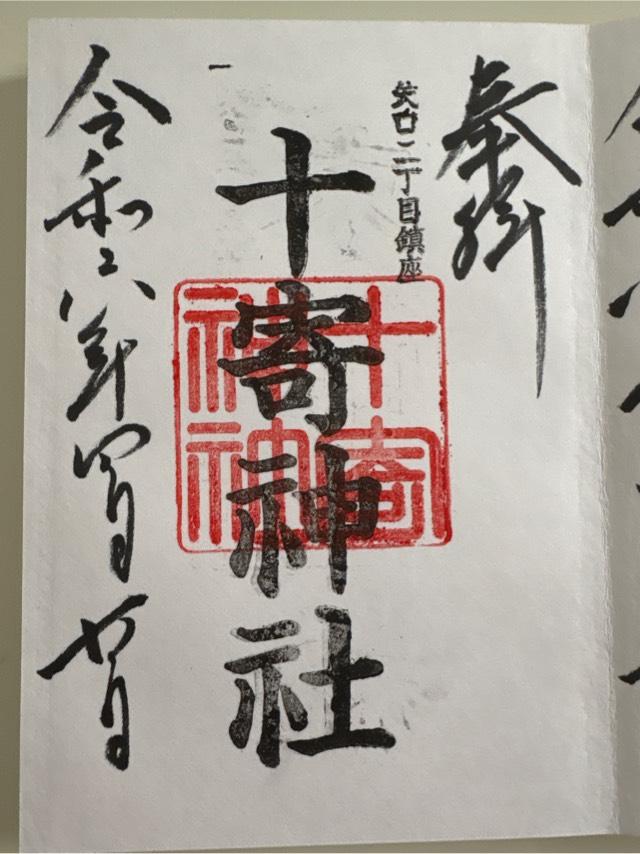 奉拝
矢口二丁目鎮座
十寄神社
十寄神社
令和六年四月廿日